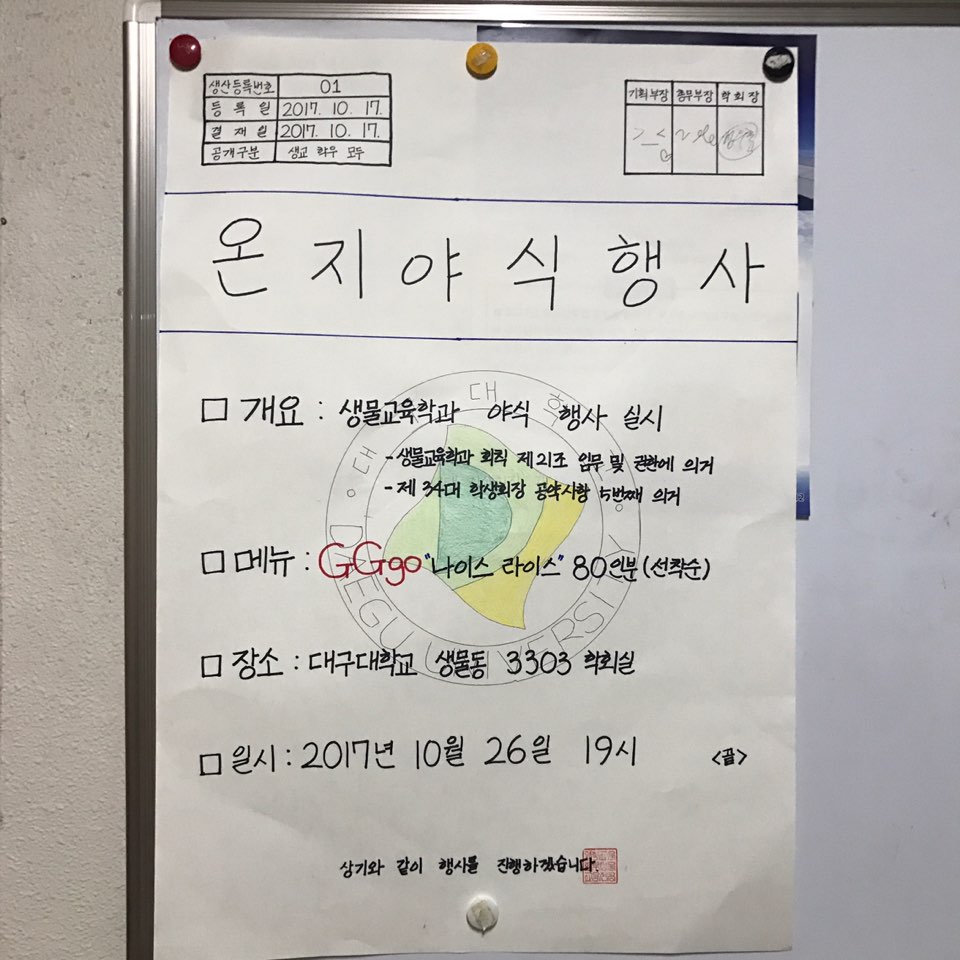 생산등록번호 01
등록일 2017. 10. 17.
결재일 2017. 10. 17.
공개구분 생교 학우 모두
기획부장 총무부장 학회장
온지야식행사
□ 개요 : 생물교육학과 야식 행사 실시
- 생물교육학과 회칙 제21조 임무 및 권한에 의거
- 제 34대 학생회장 공약사항 5번째 의거
□ 메뉴 : GGgo "나이스 라이스" 80인분 (선착순)
□ 장소 : 대구대학교 생물동 3303 학회실
□ 일시 : 2017년 10월 26일 19시 <끝>
상기와 같이 행사를 진행하겠습니다.
DAEGU UNIVERSITY